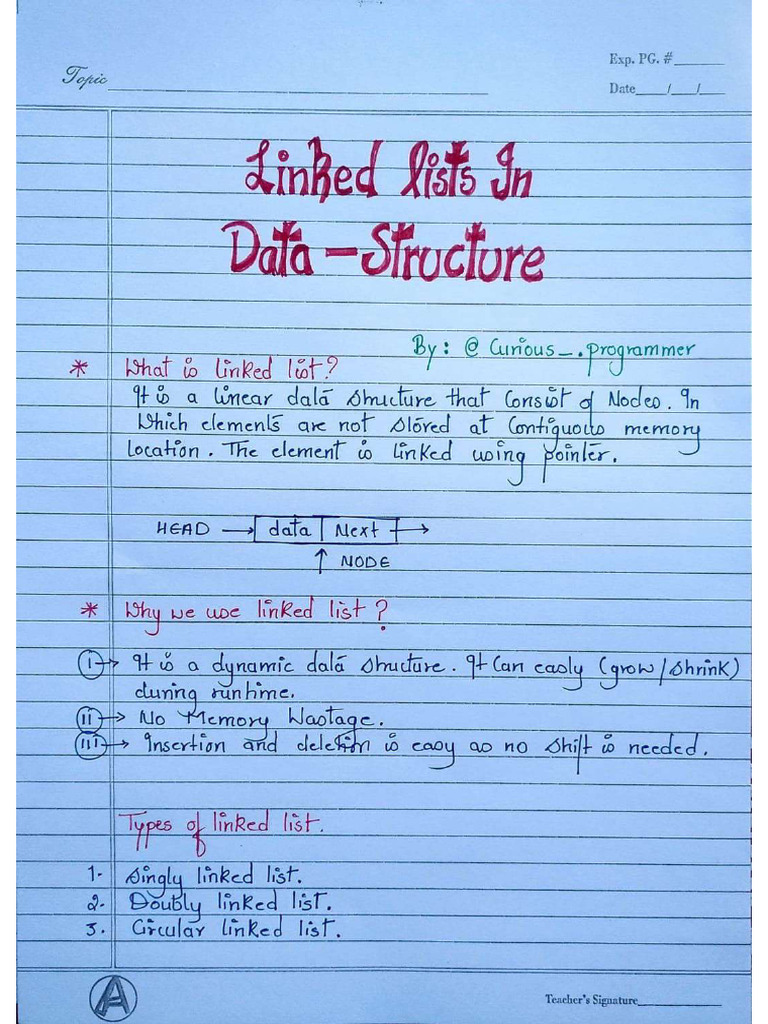 Exp. PG. #
Topic
Date / /
Linked lists In
Data - Structure
By: @ Curious_.programmer
* What is linked list?
It is a linear data structure that consist of Nodes. In
which elements are not stored at contiguous memory
location. The element is linked using pointer.
HEAD → data | Next →
↑ NODE
* Why we use linked list?
i → It is a dynamic data structure. It can easly (grow/shrink)
during runtime.
ii → No Memory Wastage.
iii → Insertion and deletion is easy as no shift is needed.
Types of linked list.
1. Singly linked list.
2. Doubly linked list.
3. Circular linked list.
A
Teacher's Signature